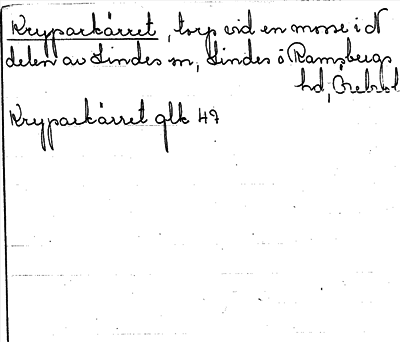 Kryparkärret, torp vid en mosse i N
delen av Lindes sn, Lindes o Ramsbergs
hd, Örebro l
Kryparkärret glk 49